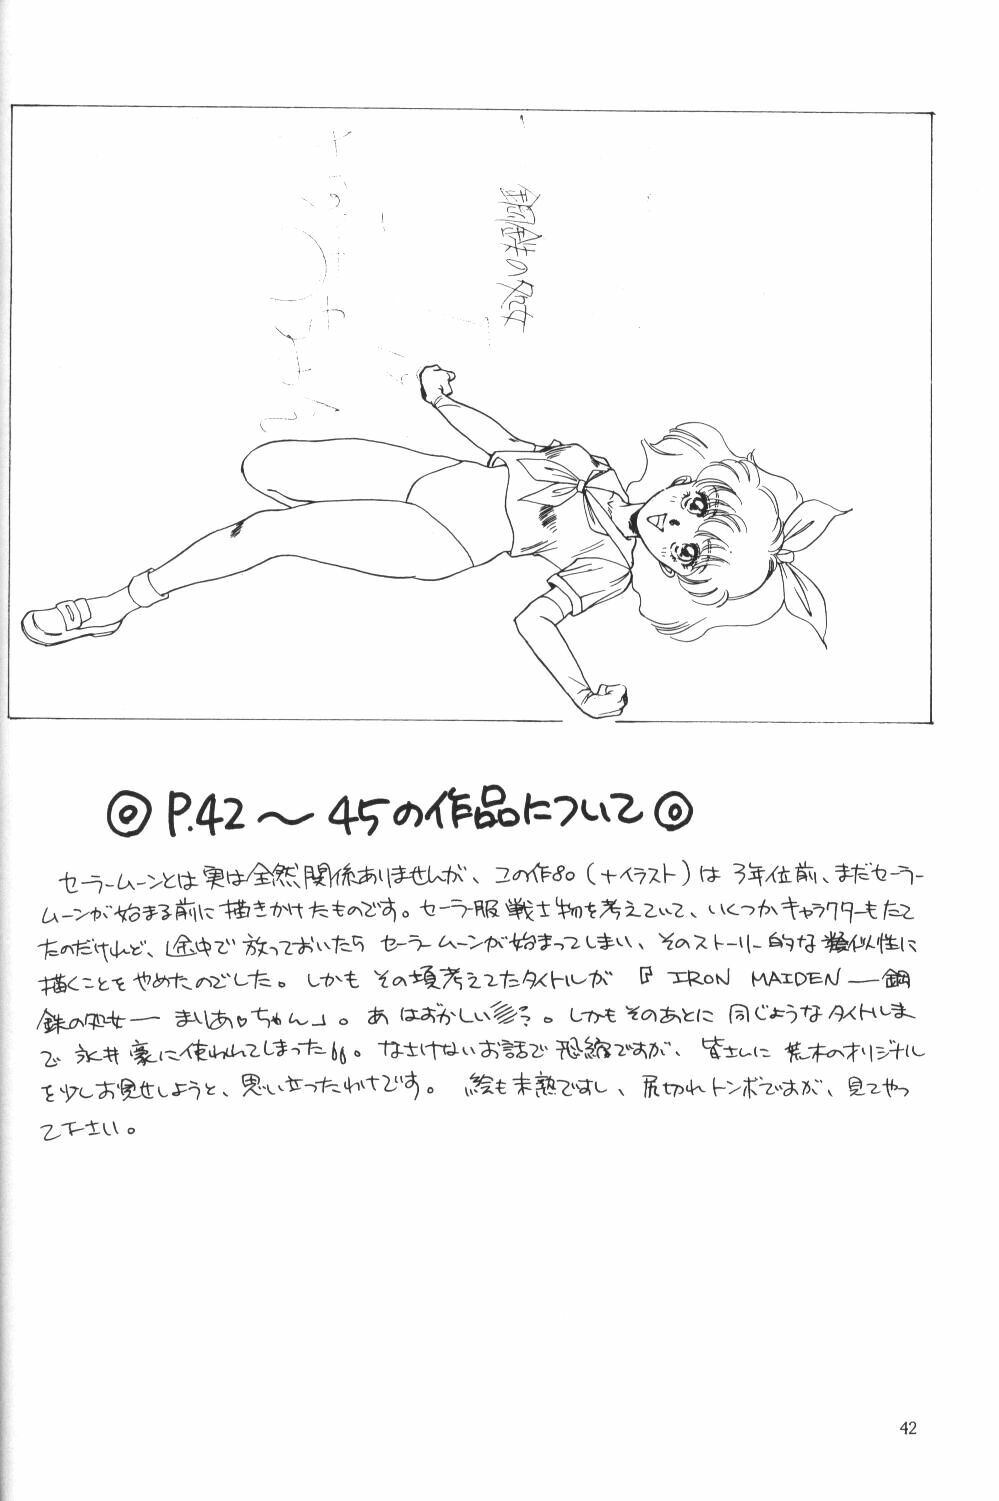 鋼鉄の処女
◎P.42～45の作品について◎
セーラームーンとは実は全然関係ありませんが、この作品（＋イラスト）は3年位前、まだセーラー
ムーンが始まる前に描きかけたものです。セーラー服戦士物を考えていて、いくつかキャラクターもたて
たのだけれど、途中で放っておいたらセーラームーンが始まってしまい、そのストーリー的な類似性に
描くことをやめたのでした。しかもその頃考えてたタイトルが『IRON MAIDEN―鋼
鉄の処女―まりあ♡ちゃん」。あはおかしい。しかもそのあとに同じようなタイトルま
で永井豪に使われてしまった。なさけないお話で恐縮ですが、皆さんに荒木のオリジナル
を少しお見せしようと、思い立ったわけです。絵も未熟ですし、尻切れトンボですが、見てやっ
て下さい。
42